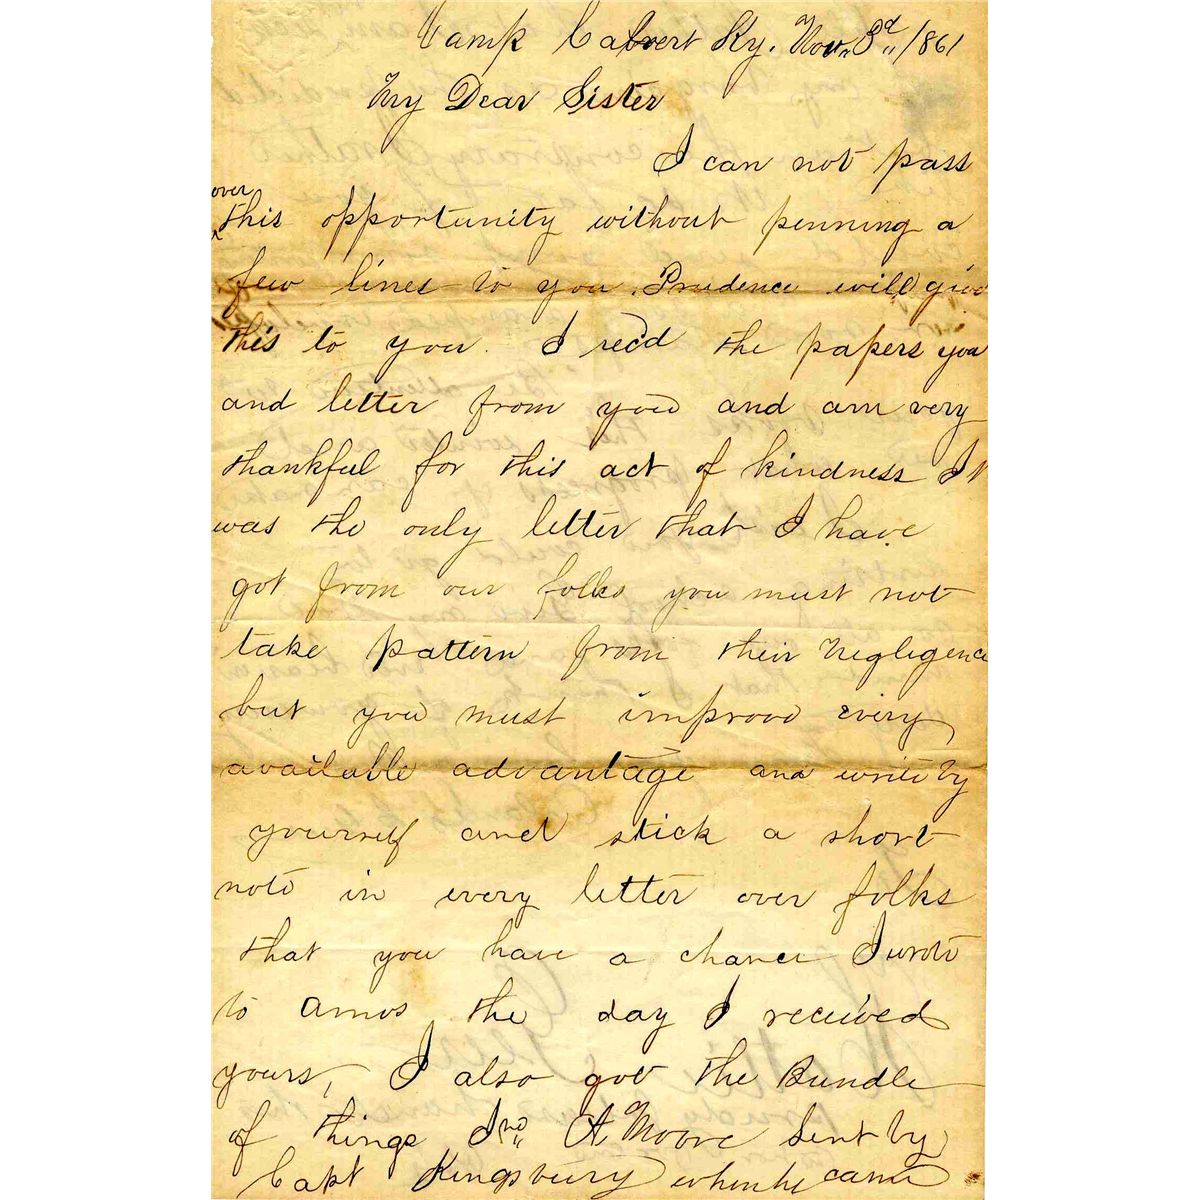 Camp Calvert Ky. Nov. 3d /1861
My Dear Sister
I can not pass
over
this opportunity without penning a
few lines to you. Prudence will give
this to you. I recd the papers you
and letter from you and am very
thankful for this act of kindness It
was the only letter that I have
got from our folks you must not
take pattern from their negligence
but you must improve every
available advantage and write by
yourself and stick a short
note in every letter over folks
that you have a chance I wrote
to Amos the day I received
yours, I also got the Bundle
of things Jno A Moore sent by
Capt Kingsbury when he came